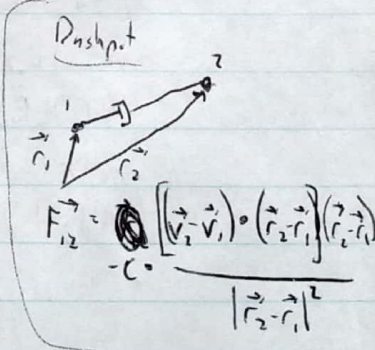 Dashpot
1
2
r⃗₁
r⃗₂
F⃗₁₂ = -C · [(v⃗₂-v⃗₁)•(r⃗₂-r⃗₁)](r⃗₂-r⃗₁) / |r⃗₂-r⃗₁|²